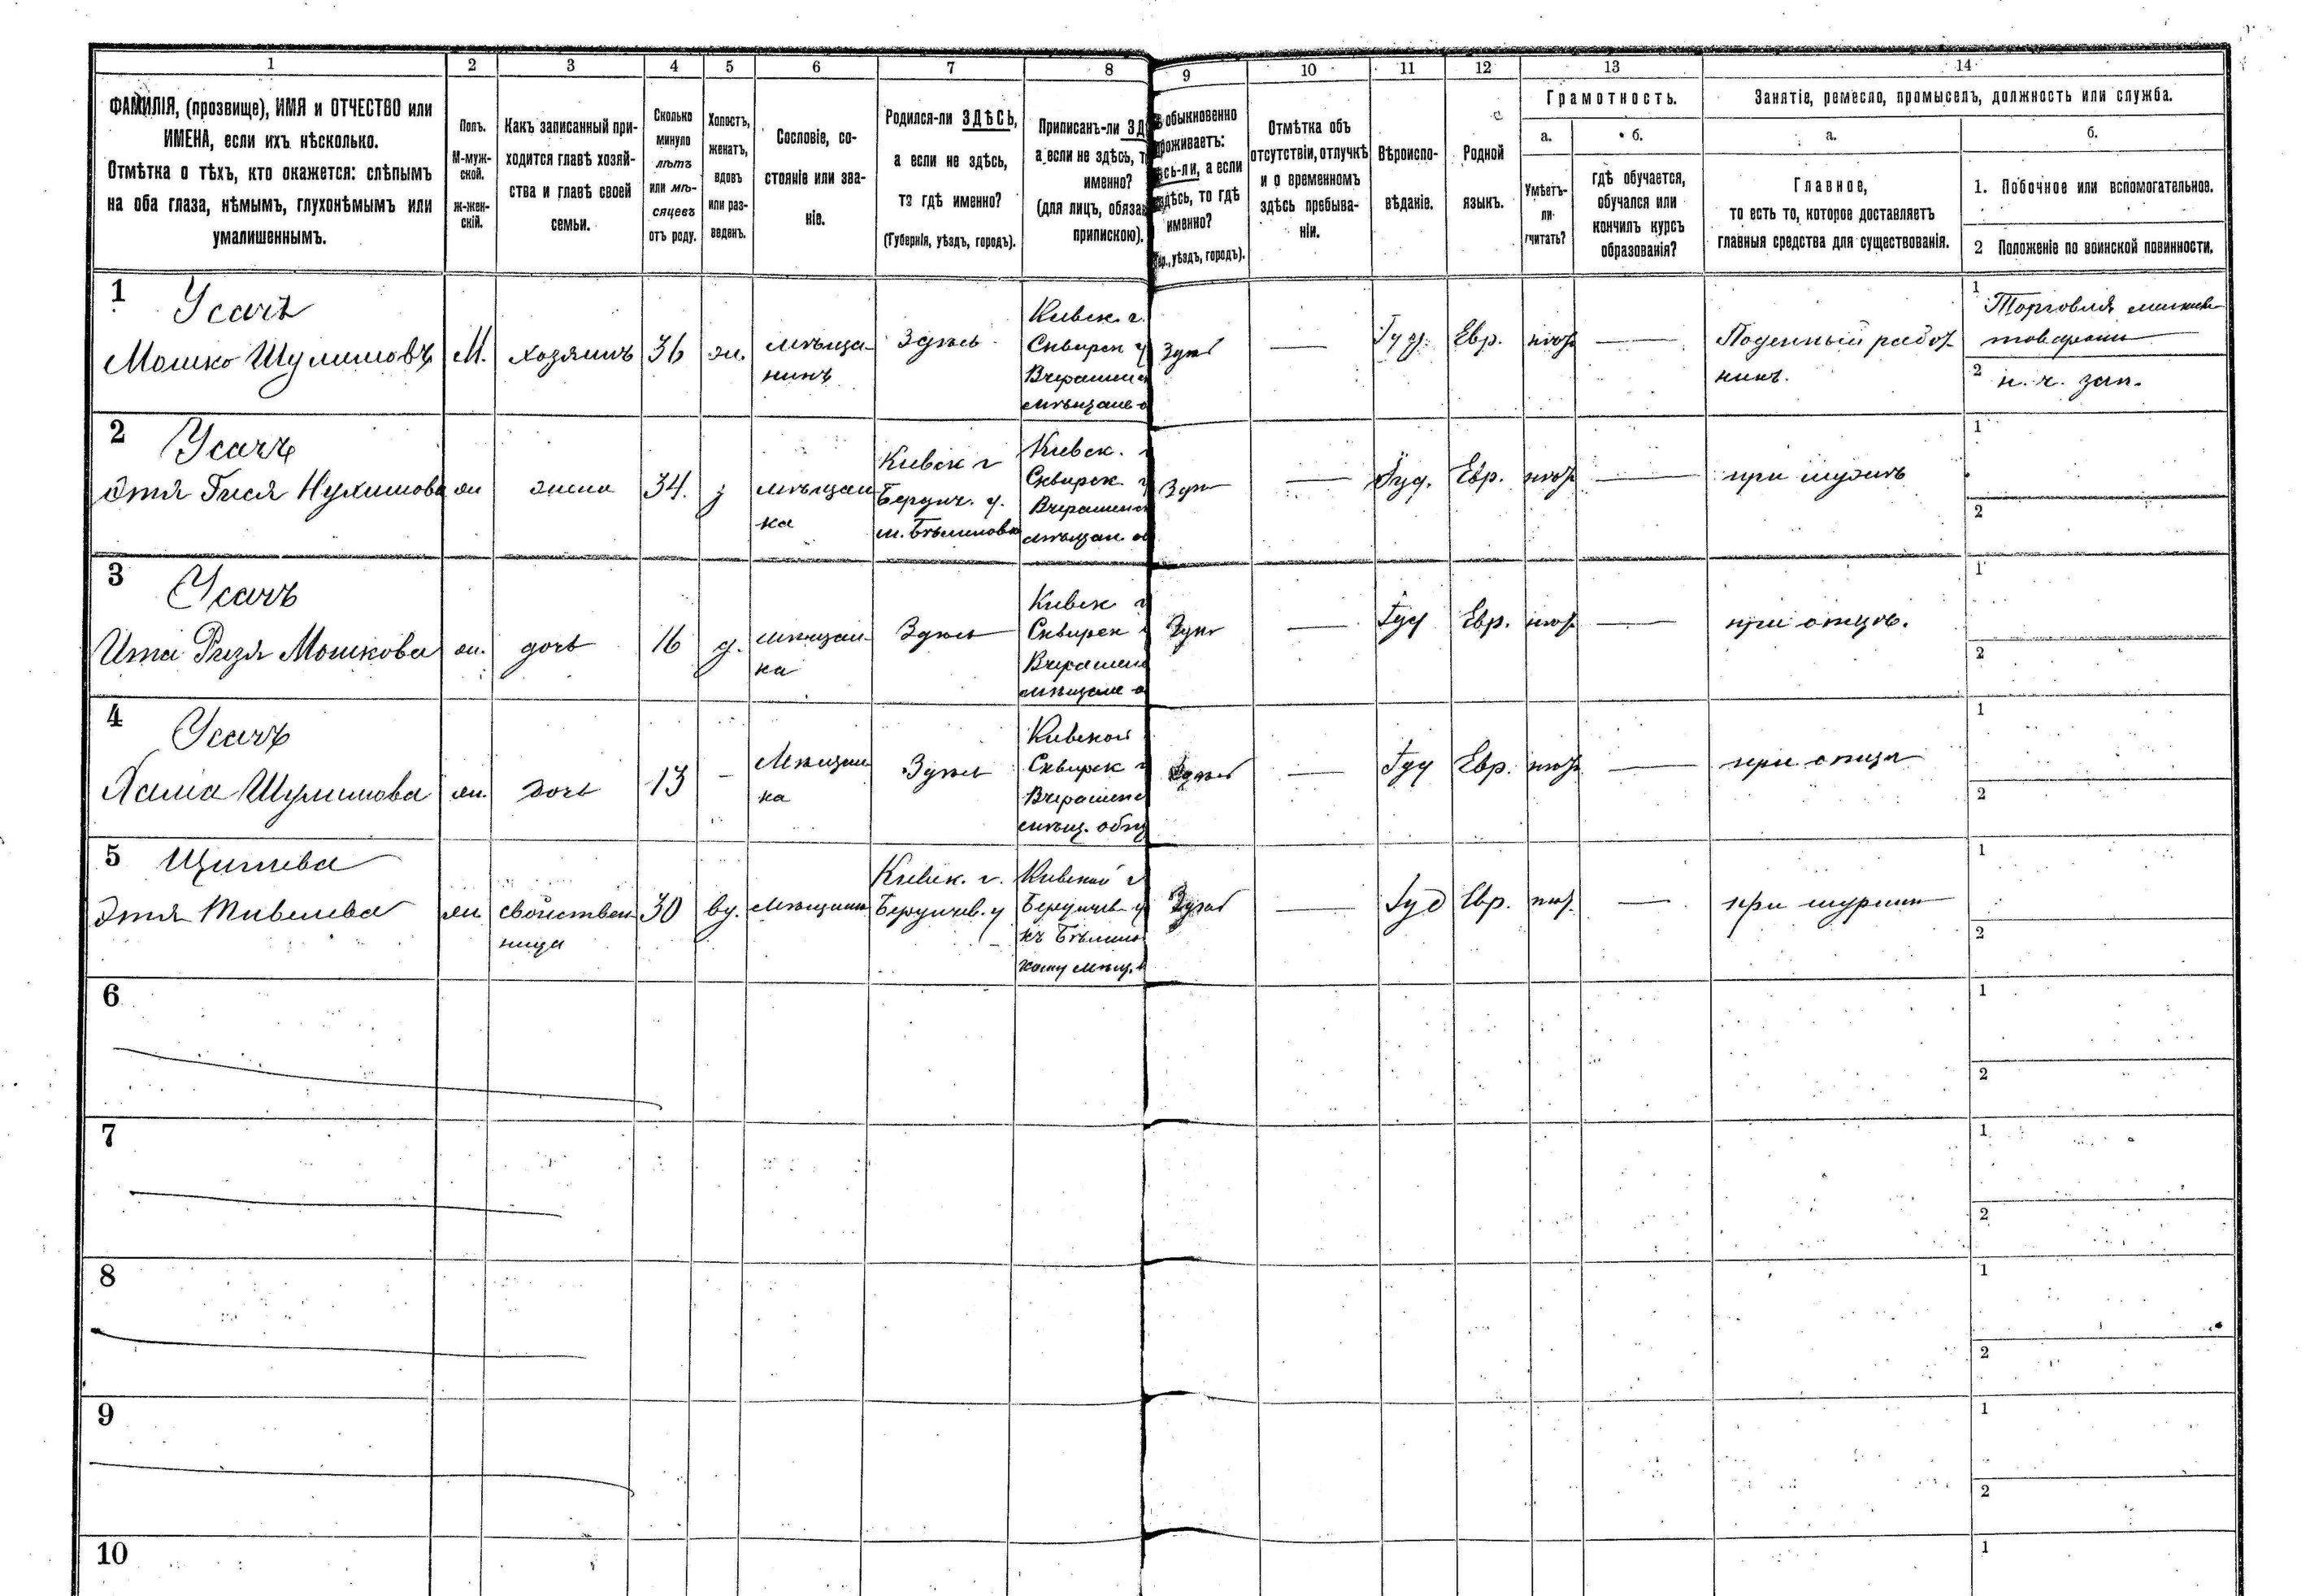 1 2 3 4 5 6 7 8 9 10 11 12 13 14
ФАМИЛІЯ, (прозвище), ИМЯ и ОТЧЕСТВО или
ИМЕНА, если ихъ нѣсколько.
Отмѣтка о тѣхъ, кто окажется: слѣпымъ
на оба глаза, нѣмымъ, глухонѣмымъ или
умалишеннымъ.
Полъ.
М-муж-
ской.
ж-жен-
скій.
Какъ записанный при-
ходится главѣ хозяй-
ства и главѣ своей
семьи.
Сколько
минуло
лѣтъ
или мѣ-
сяцевъ
отъ роду.
Холостъ,
женатъ,
вдовъ
или раз-
веденъ.
Сословіе, со-
стояніе или зва-
ніе.
Родился-ли ЗДѢСЬ,
а если не здѣсь,
то гдѣ именно?
(Губернія, уѣздъ, городъ).
Приписанъ-ли ЗД
а если не здѣсь, т
именно?
(для лицъ, обяза
припискою).
обыкновенно
роживаетъ:
сь-ли, а если
здѣсь, то гдѣ
именно?
уѣздъ, городъ).
Отмѣтка объ
отсутствіи, отлучкѣ
и о временномъ
здѣсь пребыва-
ніи.
Вѣроиспо-
вѣданіе.
Родной
языкъ.
Грамотность.
а. б.
Умѣетъ-
ли
читать?
гдѣ обучается,
обучался или
кончилъ курсъ
образованія?
Занятіе, ремесло, промыселъ, должность или служба.
а. б.
Главное,
то есть то, которое доставляетъ
главныя средства для существованія.
1. Побочное или вспомогательное.
2 Положеніе по воинской повинности.
1 Усачъ
Мошко Шулимовъ
М. хозяинъ 36 ж.
мѣща-
нинъ
Здѣсь
Кіевск. г.
Сквирск у
Вчерашнс
мѣщане о
Здѣсь — Іуд. Евр. —
Поденный работ-
никъ.
1 Торговля
товарами
2 н. ч. зап.
2 Усачъ
Этя Гися Нухимова
ж жена 34.
мѣщан
ка
Кіевск г
Бердич. у.
м. Бѣлиловка
Кіевск. г
Сквирск. у
Вчерашнс
мѣщан. об
Здѣ — Іуд. Евр. — при мужѣ
1
2
3 Усачъ
Ита Ризя Мошкова
ж. дочь 16 д.
мѣщан
ка
Здѣсь
Кіевск г
Сквирск
Вчерашнс
мѣщане о
Здѣ — Іуд Евр. — при отцѣ.
1
2
4 Усачъ
Хаша Шулимова
ж. дочь 13 —
Мѣщан
ка
Здѣсь
Кіевской
Сквирск
Вчерашнс
мѣщ. общ
Здѣсь — Іуд Евр. — при отцѣ
1
2
5
Этя
ж.
свойствен
ница
30 вд. мѣщанк
Кіевск. г.
Бердичев. у
Кіевской г
Бердичев у
къ Бѣлилов
кому мѣщ.
Здѣсь — Іуд Евр. — при
1
2
6
1
2
7
1
2
8
1
2
9
1
2
10
1